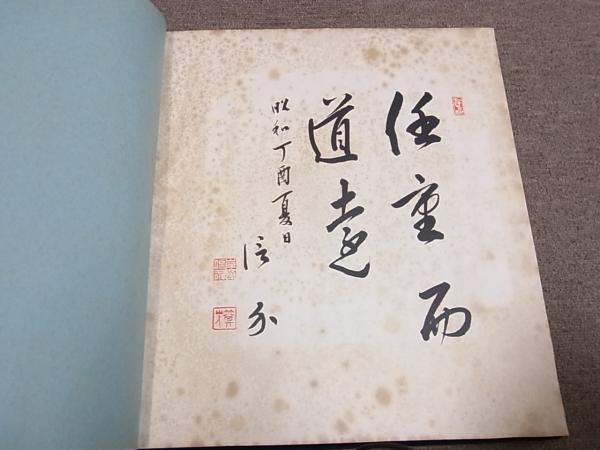 任重而
道遠
昭和丁酉夏日
信